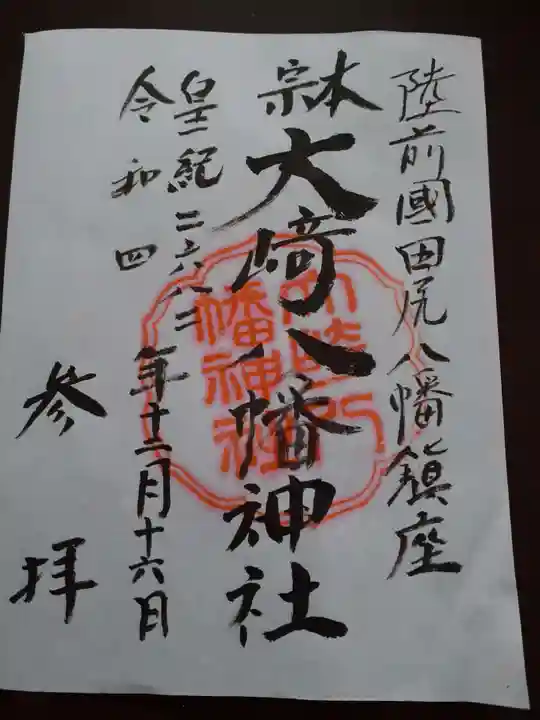 陸前國田尻八幡鎮座
本宗
大崎八幡神社
皇紀二六八二
令和四
年十二月十六日
参拝